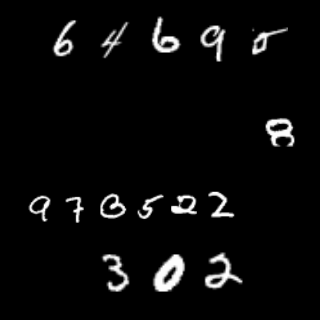 64695
8
973522
302